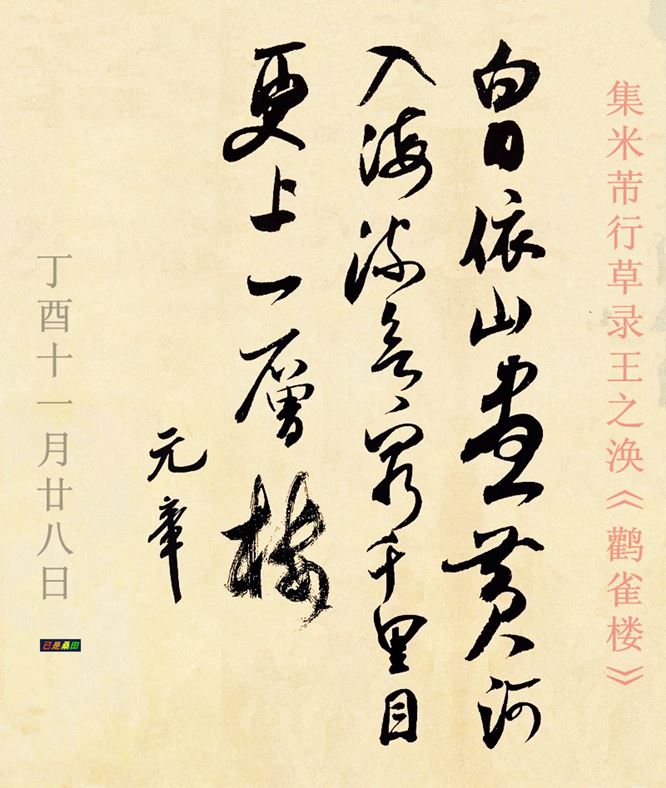 集米芾行草录王之涣《鹳雀楼》
白日依山盡黄河
入海流欲窮千里目
更上一層樓
元章
丁酉十一月廿八日
已是桑田